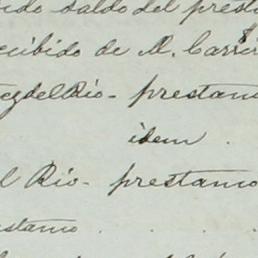 ido saldo del presta
ecibido de M. Carre
ez del Rio - prestamo
idem .
l Rio - prestamo
estamo . . . .